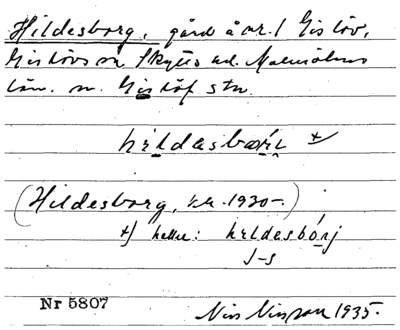 Hildesborg, gård å nr. 1 Gislöv,
Gislövs sn Skytts hd. Malmöhus
län. m. Gislöf stn.
hildasbɷrj x/
(Hildesborg, Ek. 1930-.)
x/ heller: hildasbórj
J-s
Nr 5807
Nils Nilsson 1935.